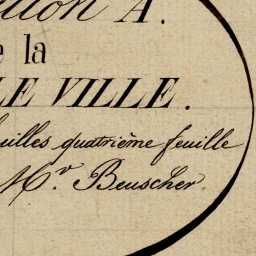 A.
la
LE VILLE.
feuilles quatrième feuille
Mr Beuscher.